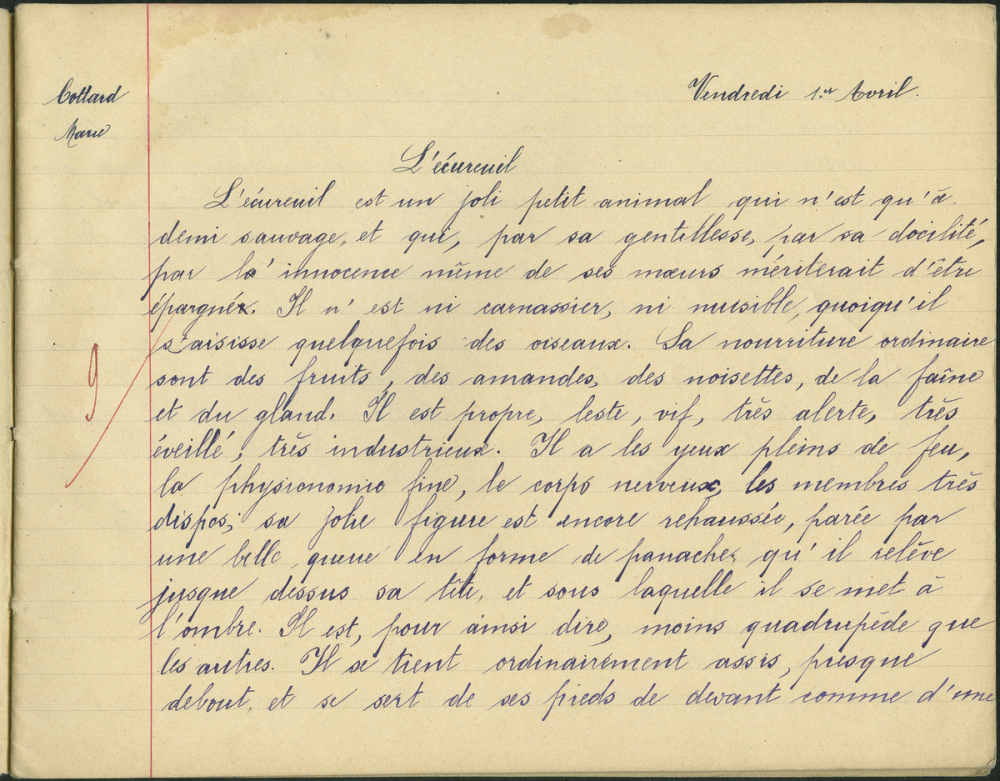 Collard
Marie
Vendredi 1er Avril.
L'écureuil
L'écureuil est un joli petit animal qui n'est qu'à
demi sauvage, et qui, par sa gentillesse, par sa docilité,
par la' innocence même de ses mœurs mériterait d'être
épargné. Il n'est ni carnassier, ni nuisible, quoiqu'il
saisisse quelquefois des oiseaux. Sa nourriture ordinaire
sont des fruits, des amandes, des noisettes, de la faîne
et du gland. Il est propre, leste, vif, très alerte, très
éveillé, très industrieux. Il a les yeux pleins de feu,
la physionomie fine, le corps nerveux, les membres très
dispos; sa jolie figure est encore rehaussée, parée par
une belle queue en forme de panache, qu'il relève
jusque dessus sa tête, et sous laquelle il se met à
l'ombre. Il est, pour ainsi dire, moins quadrupède que
les autres. Il se tient ordinairement assis, presque
debout, et se sert de ses pieds de devant comme d'une
9